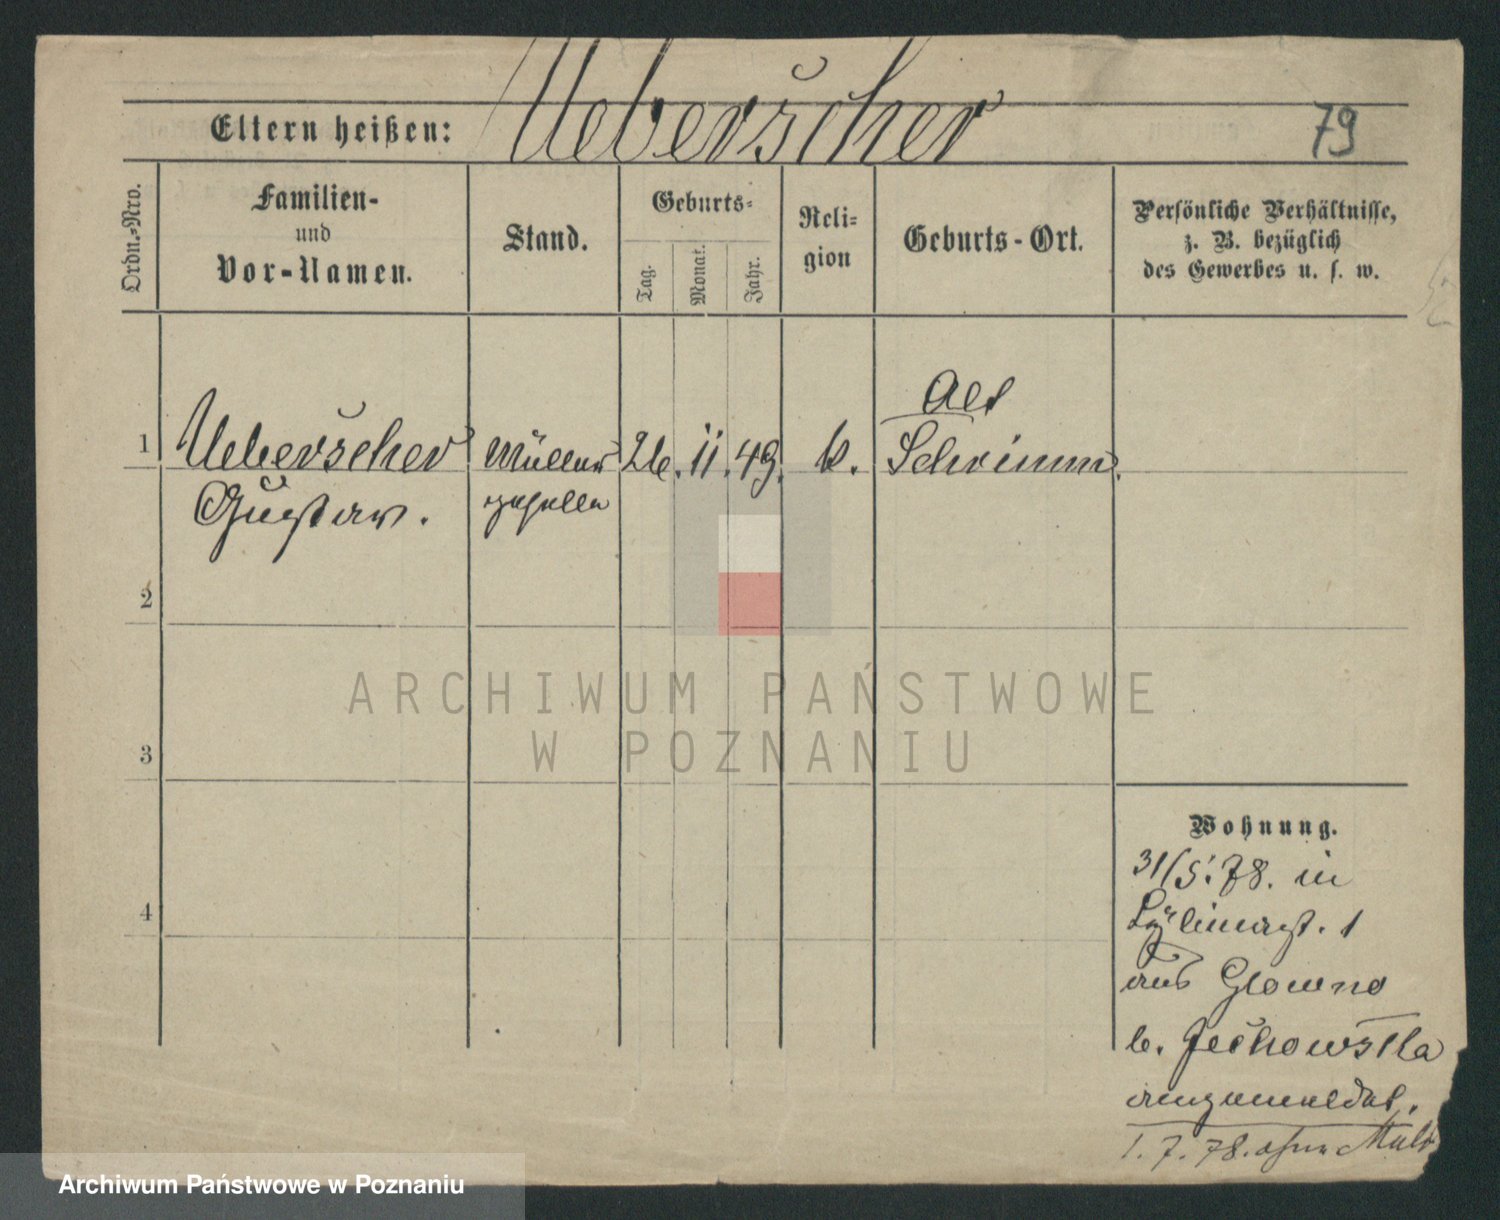 Ueberscher
Eltern heißen:
79
Ordn.-Nro.
Familien-
und
Vor-Namen.
Stand.
Geburts-
Tag.
Monat.
Jahr.
Reli-
gion
Geburts-Ort.
Persönliche Verhältnisse,
z. B. bezüglich
des Gewerbes u. s. w.
Alt
1 Ueberscher Müller 26. 11. 49. k. Schrimm.
Gustav. geselle
2
3
4
ARCHIWUM PAŃSTWOWE
W POZNANIU
Wohnung.
31/5. 78. in
1
aus Glowno
b. Zechowska
angemeldet.
1. 7. 78. ohne
Archiwum Państwowe w Poznaniu